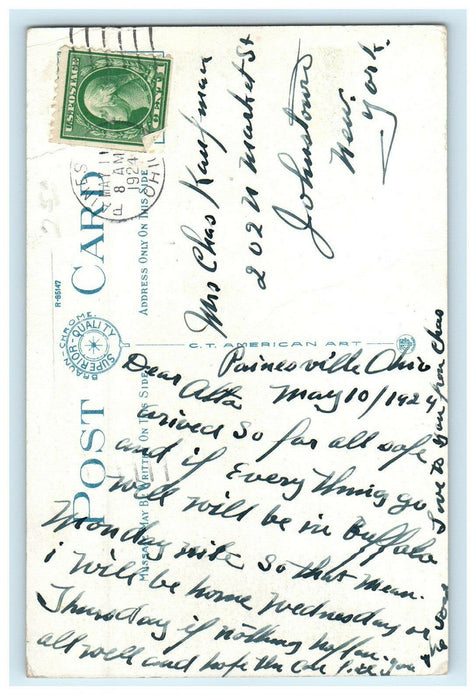 U.S. POSTAGE
1 CENT 1
MAY 11
8 AM
1924
OHIO
POST CARD
ADDRESS ONLY ON THIS SIDE
MESSAGE MAY BE WRITTEN ON THIS SIDE
R-65147
BRAUN-CHROME
SUPERIOR-QUALITY
C.T. AMERICAN ART
Mrs Chas Kaufman
202 N Market St
Johnstown
New
York.
Painesville Ohio
May 10/1924
Dear Alta
arived so far all safe
and if Every thing go
well will be in Buffalo
Monday nite so that mean.
i will be home Wednesday or
Thursday if nothing happen.
all well and hope the
love to you from Chas